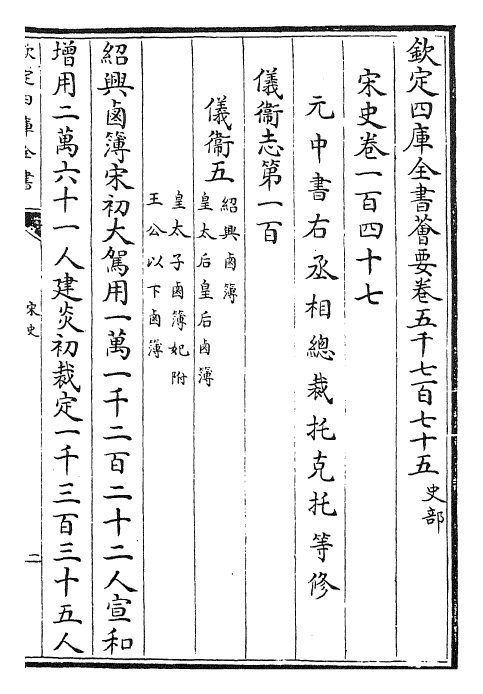 欽定四庫全書薈要卷五千七百七十五史部
宋史卷一百四十七
元中書右丞相總裁托克托等修
儀衞志第一百
儀衞五
紹興鹵簿
皇太后皇后鹵簿
皇太子鹵簿妃附
王公以下鹵簿
紹興鹵簿宋初大駕用一萬一千二百二十二人宣和
增用二萬六十一人建炎初裁定一千三百三十五人
欽定四庫全書
宋史
二